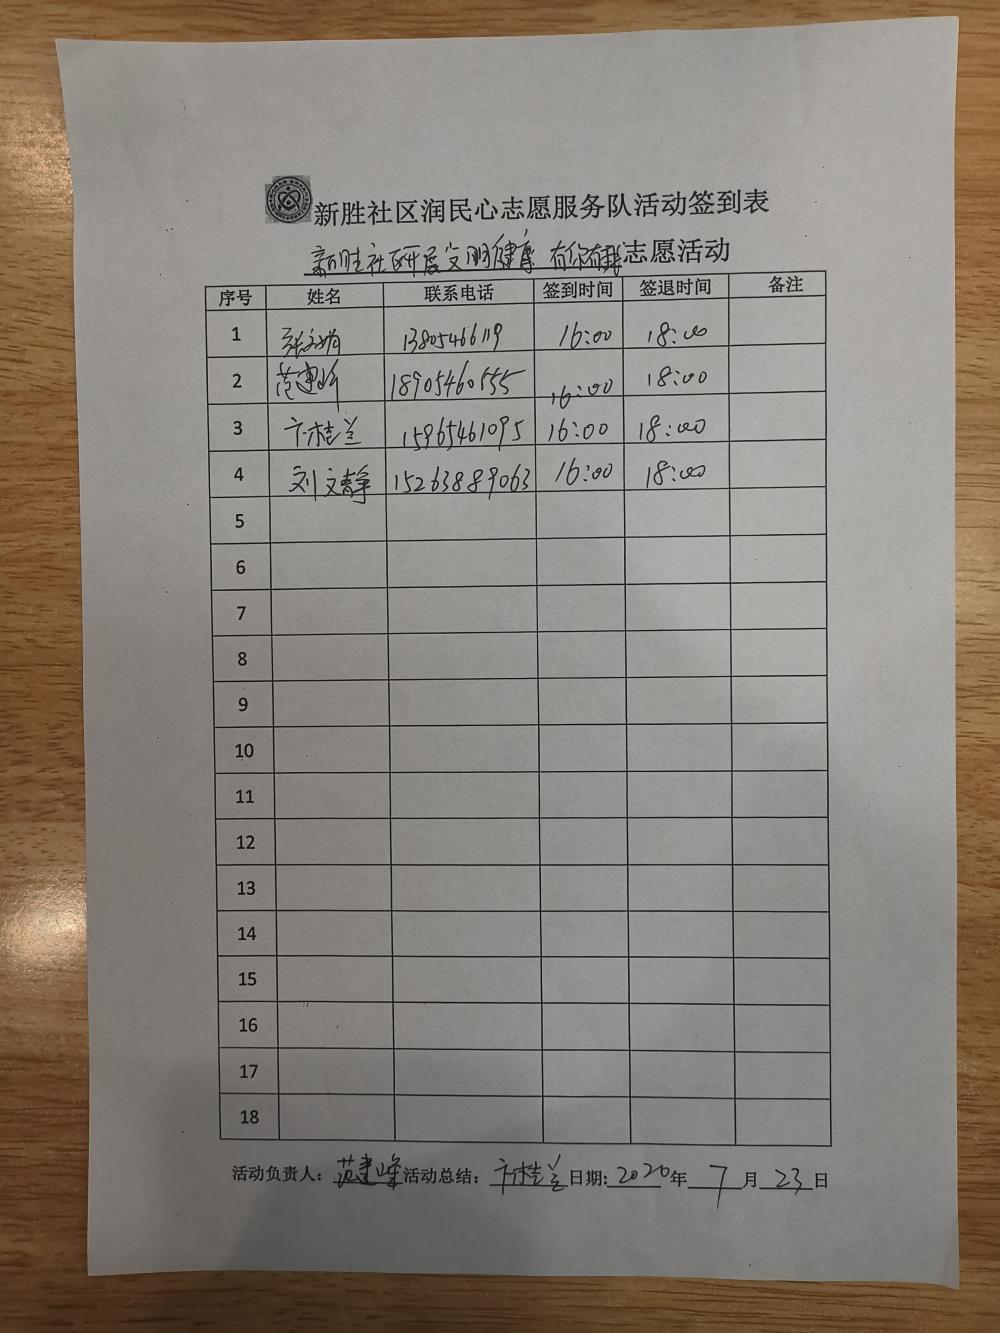 新胜社区润民心志愿服务队活动签到表
新胜社区开展文明健康 有你有我志愿活动
序号 姓名 联系电话 签到时间 签退时间 备注
1 张文娟 13805466119 16:00 18:00
2 范建峰 18905460555 16:00 18:00
3 卞桂兰 15965461095 16:00 18:00
4 刘文静 15263889063 16:00 18:00
5
6
7
8
9
10
11
12
13
14
15
16
17
18
活动负责人：范建峰 活动总结：卞桂兰 日期：2020年 7 月 23 日